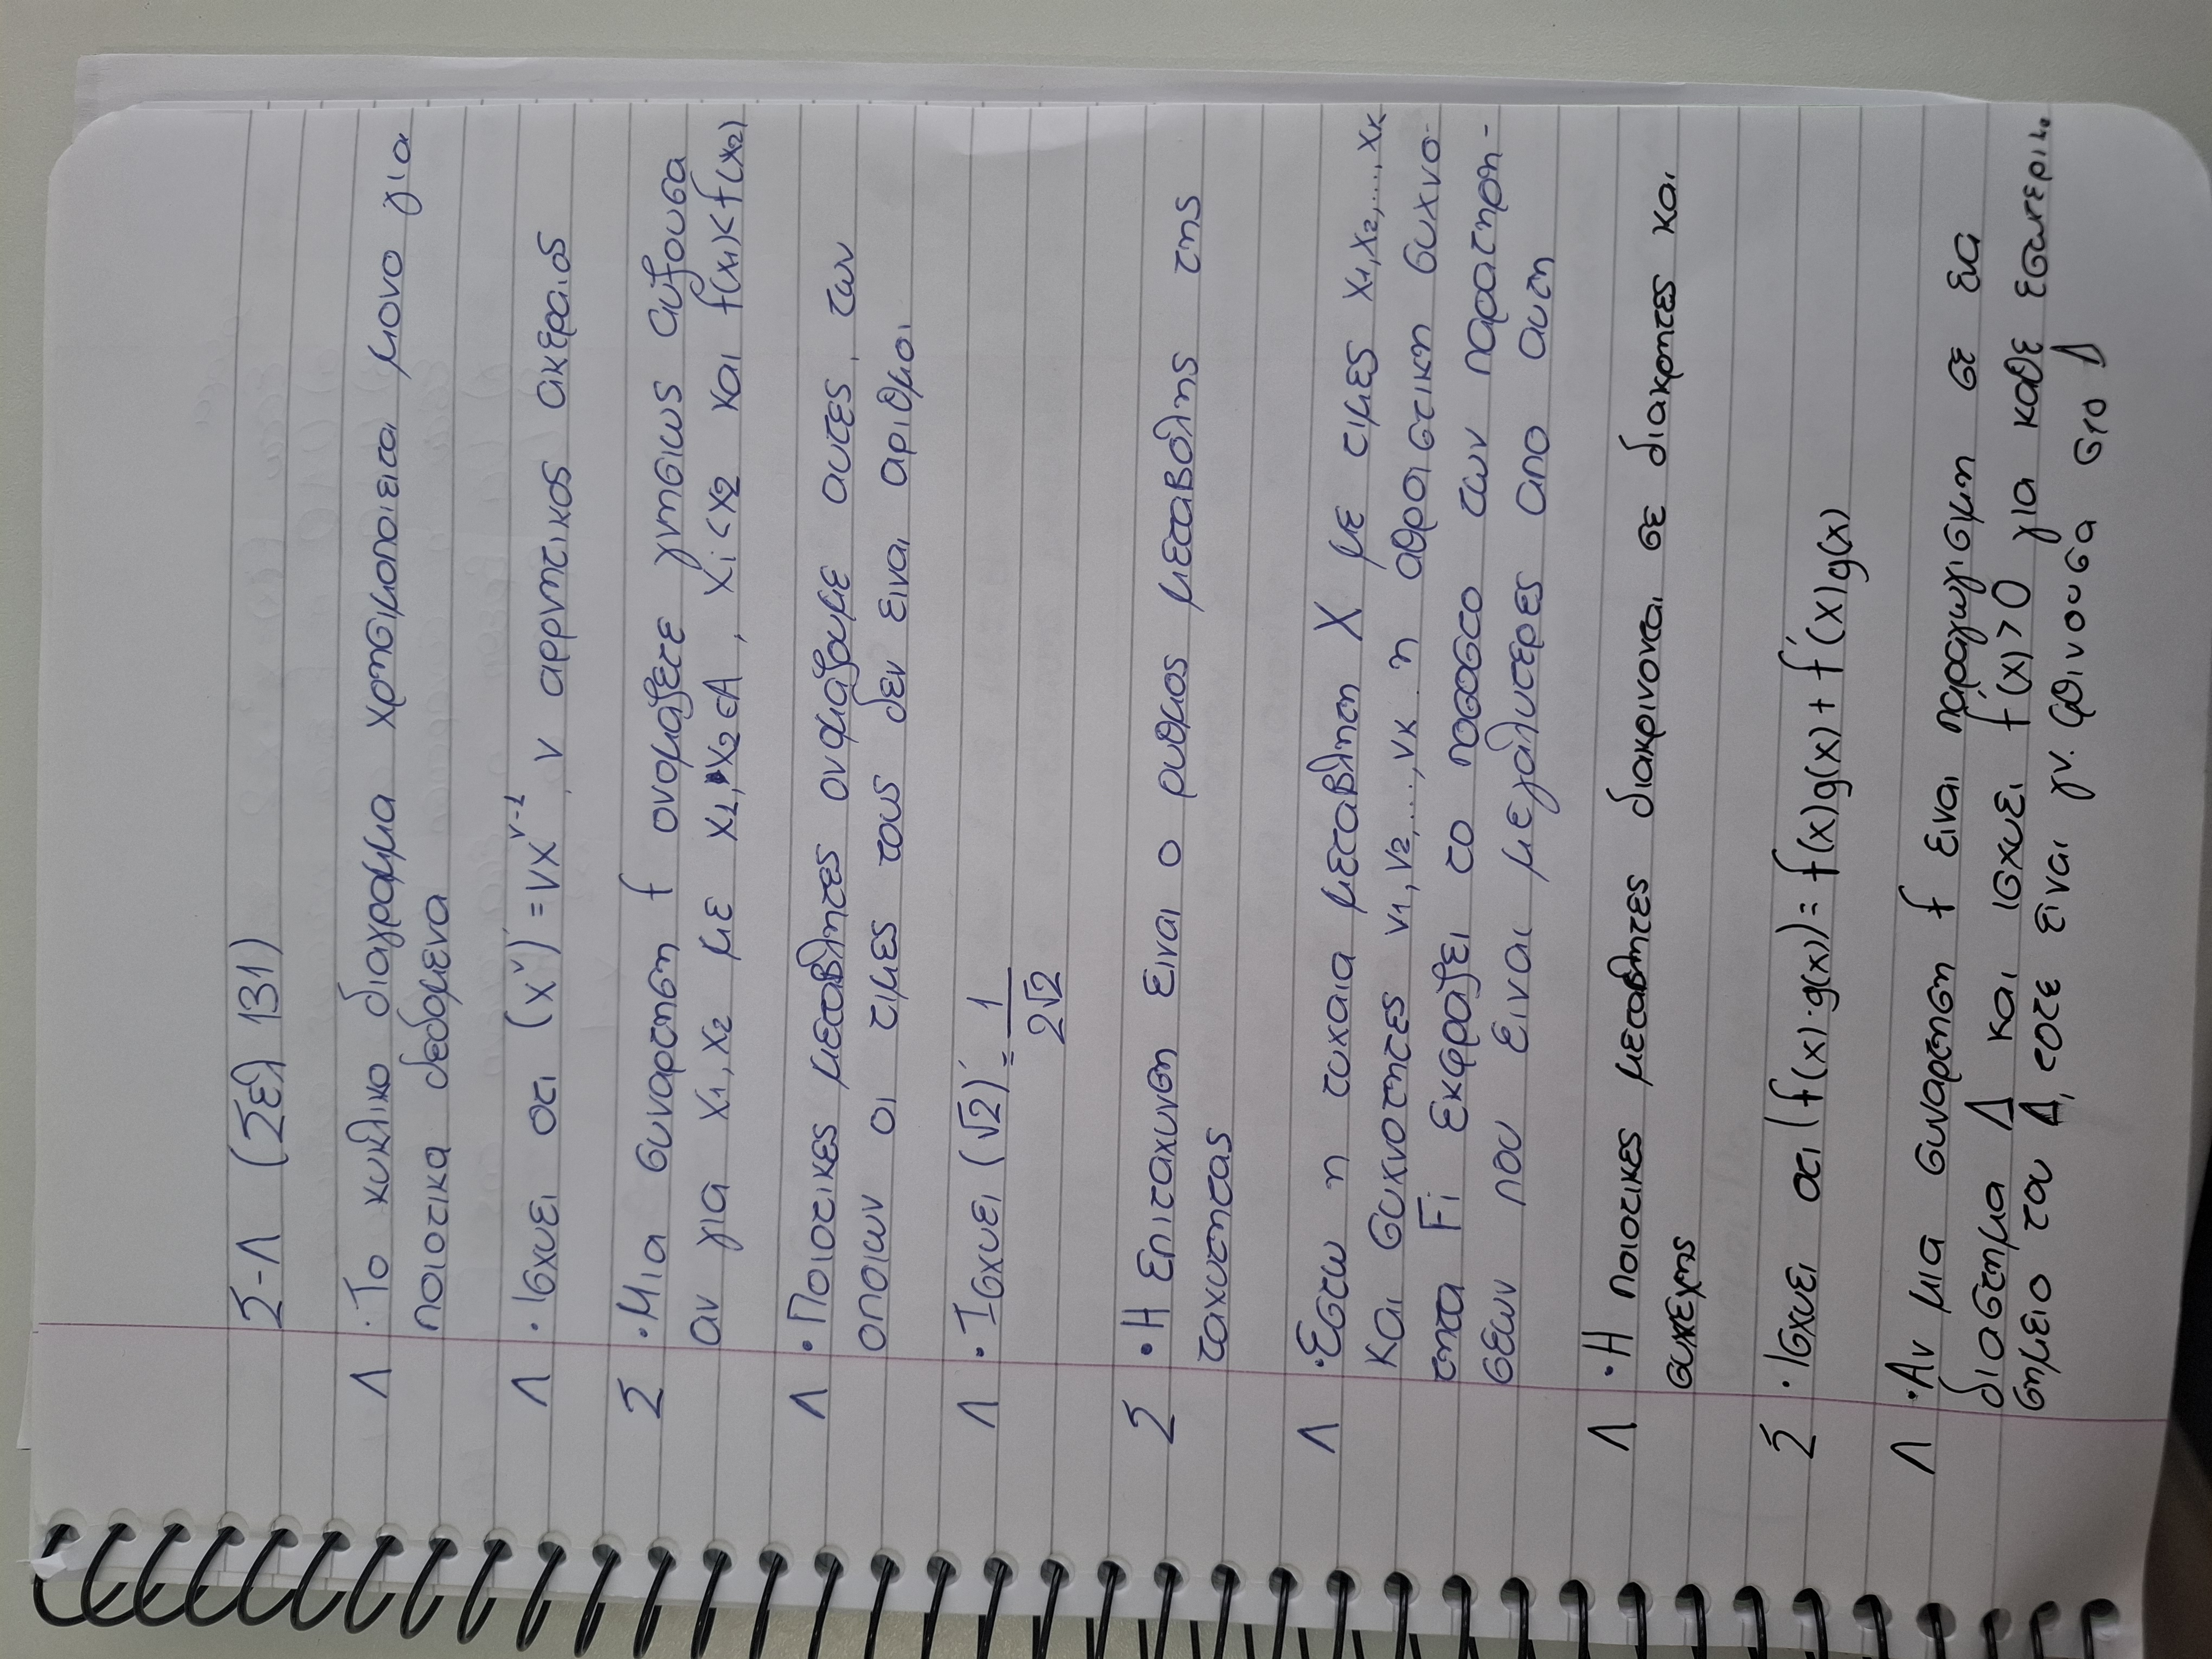 Σ-Λ (Σελ 131)
Λ · Το κυκλικο διαγραμμα χρησιμοποιειται μονο για
ποιοτικα δεδομενα
Λ · Ισχυει οτι (x^ν)' = νx^(ν-1), ν αρρητικος ακεραιος
Σ · Μια συναρτηση f ονομαζετε γνησιως αυξουσα
αν για x1, x2 με x1, x2 ∈ A, xi < x2 και f(x1) < f(x2)
Λ · Ποιοτικες μεταβλητες ονομαζουμε αυτες, των
οποιων οι τιμες τους δεν ειναι αριθμοι
Λ · Ισχυει (√2)' = 1/(2√2)
Σ · Η επιταχυνση ειναι ο ρυθμος μεταβολης της
ταχυτητας
Λ · Εστω η τυχαια μεταβλητη X με τιμες x1, x2, ..., xκ
και συχνοτητες ν1, ν2, ..., νκ. η αθροιστικη συχνο-
τητα Fi εκφραζει το ποσοστο των παρατηρη-
σεων που ειναι μεγαλυτερες απο αυτη
Λ · Η ποιοτικες μεταβλητες διακρινονται σε διακριτες και
συνεχης
Σ · Ισχυει οτι (f(x)·g(x))' = f(x)g'(x) + f'(x)g(x)
Λ · Αν μια συναρτηση f ειναι παραγωγισιμη σε ενα
διαστημα Δ και ισχυει f'(x) > 0 για καθε εσωτερικ.
σημειο του Δ, τοτε ειναι γν. φθινουσα στο Δ